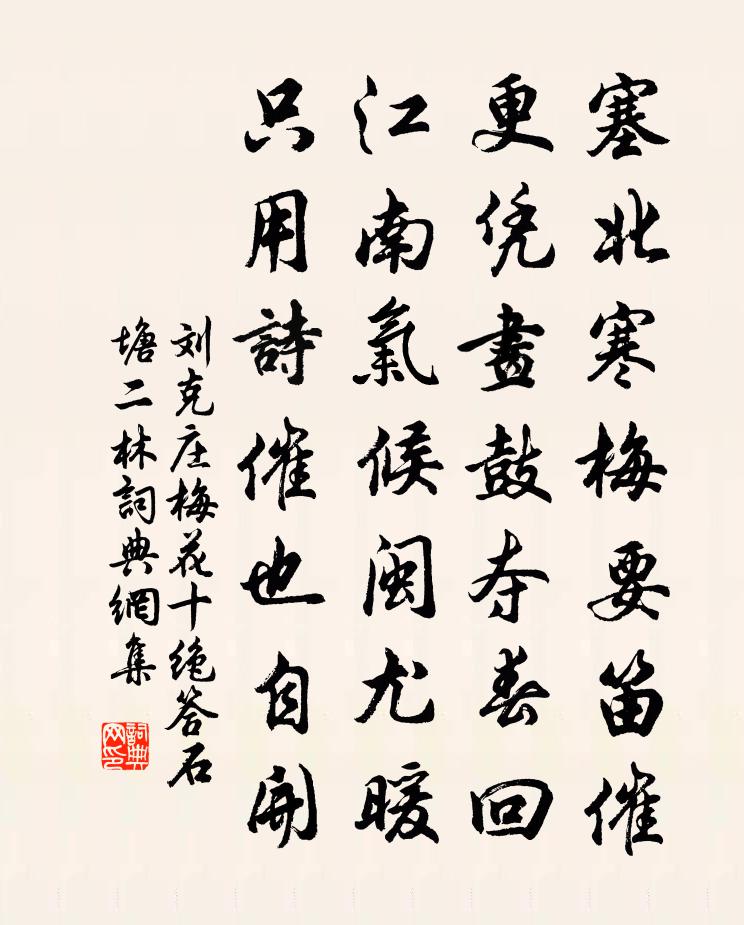 塞北寒梅要笛催
更凭畫鼓夺春回
江南氣候闽尤暖
只用詩催也自開
刘克庄梅花十绝答石
塘二林詞典網集
詞典网印